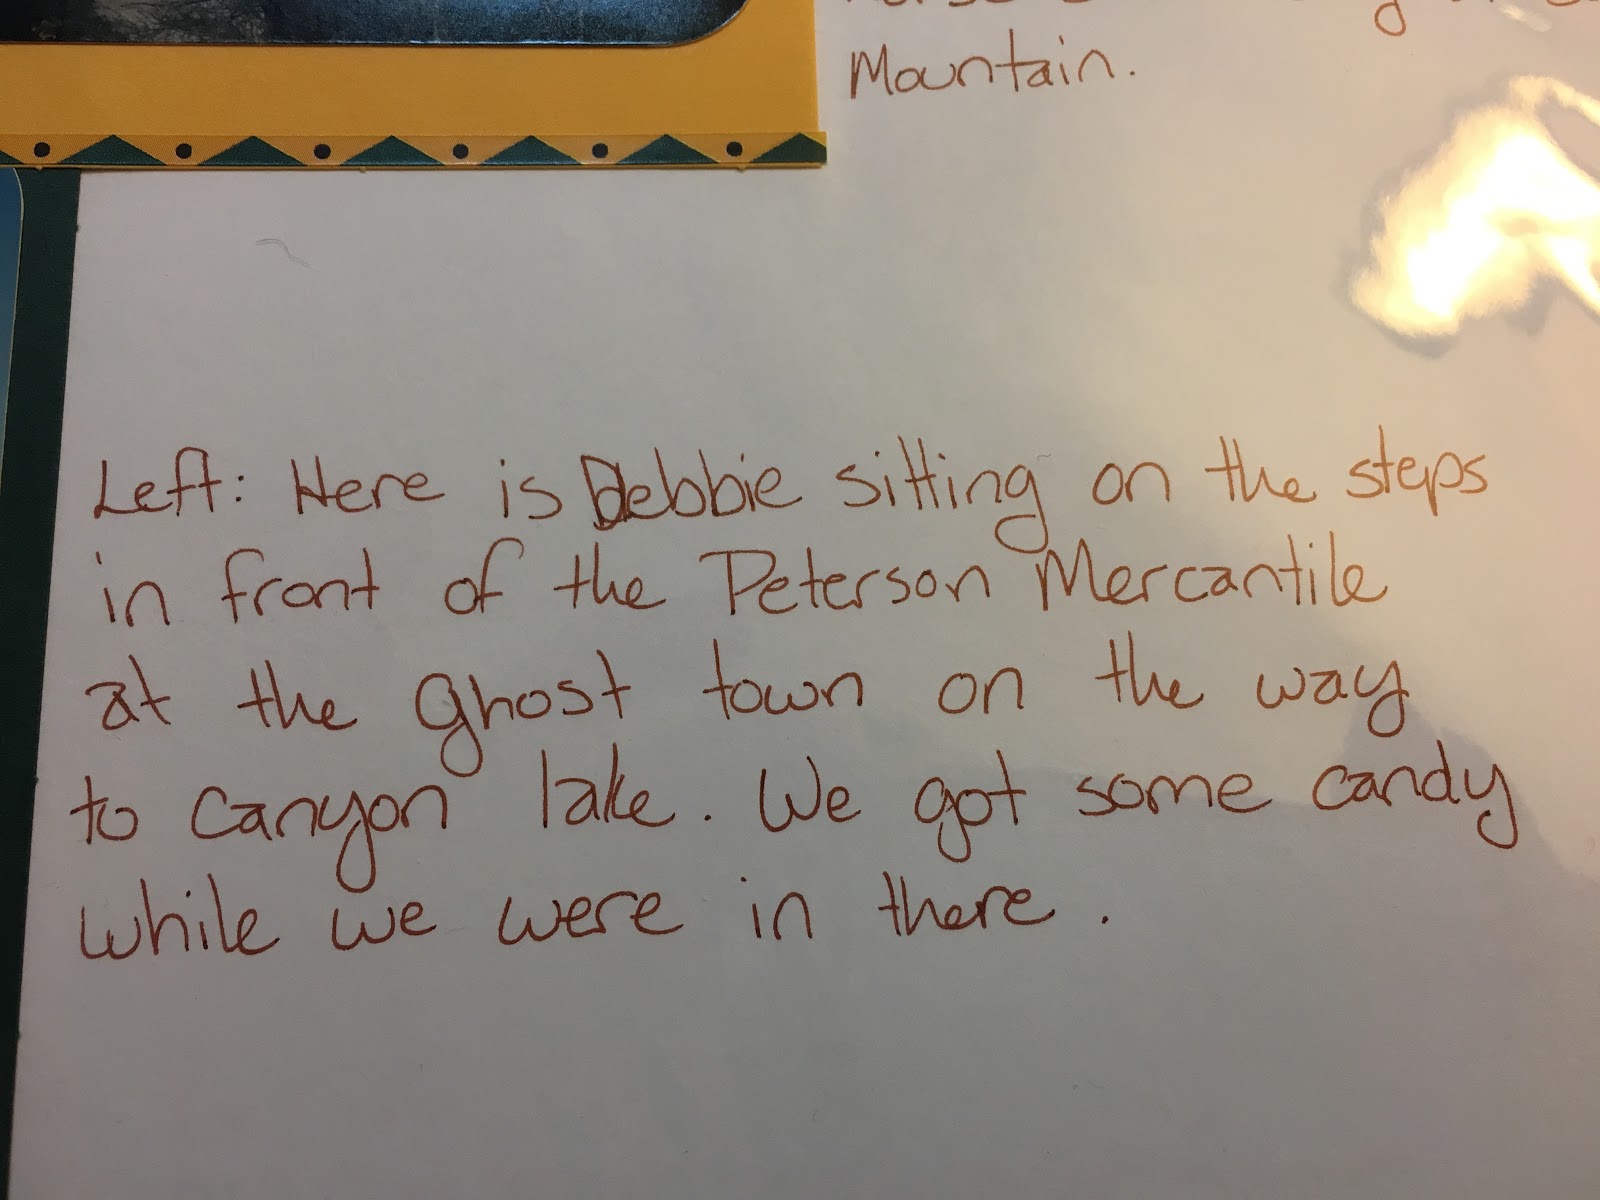 Mountain.
Left: Here is Debbie sitting on the steps
in front of the Peterson Mercantile
at the ghost town on the way
to Canyon lake. We got some candy
while we were in there.